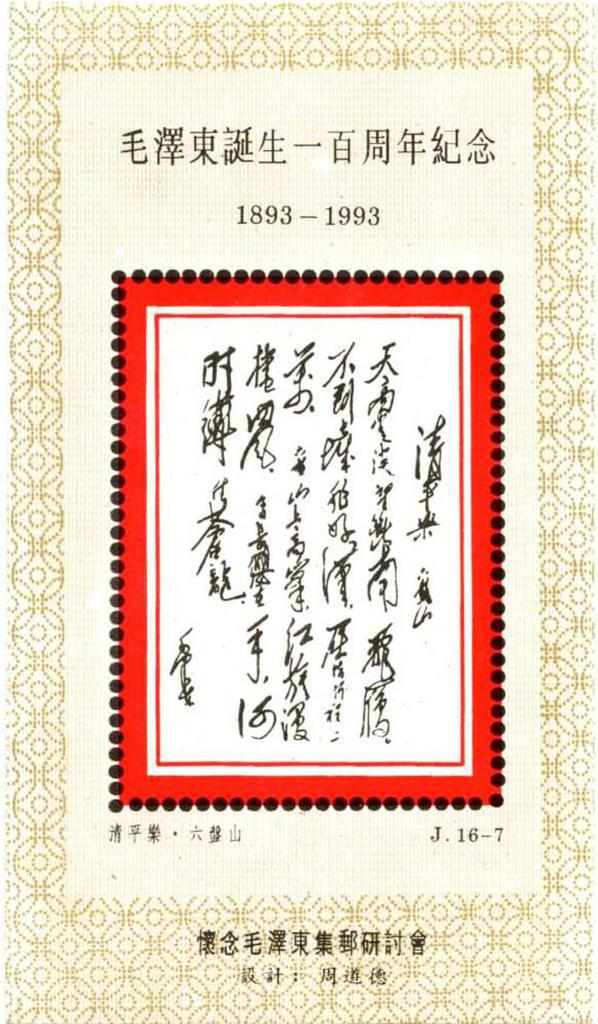 毛澤東誕生一百周年紀念
1893－1993
清平樂 六盤山
天高雲淡望斷南飛雁。
不到長城非好漢，屈指行程二
萬。六盤山上高峯，紅旗漫
捲西風。今日長纓在手，何
時縛住蒼龍
毛澤東
清平樂·六盤山
J.16－7
懷念毛澤東集郵研討會
設計：周道德